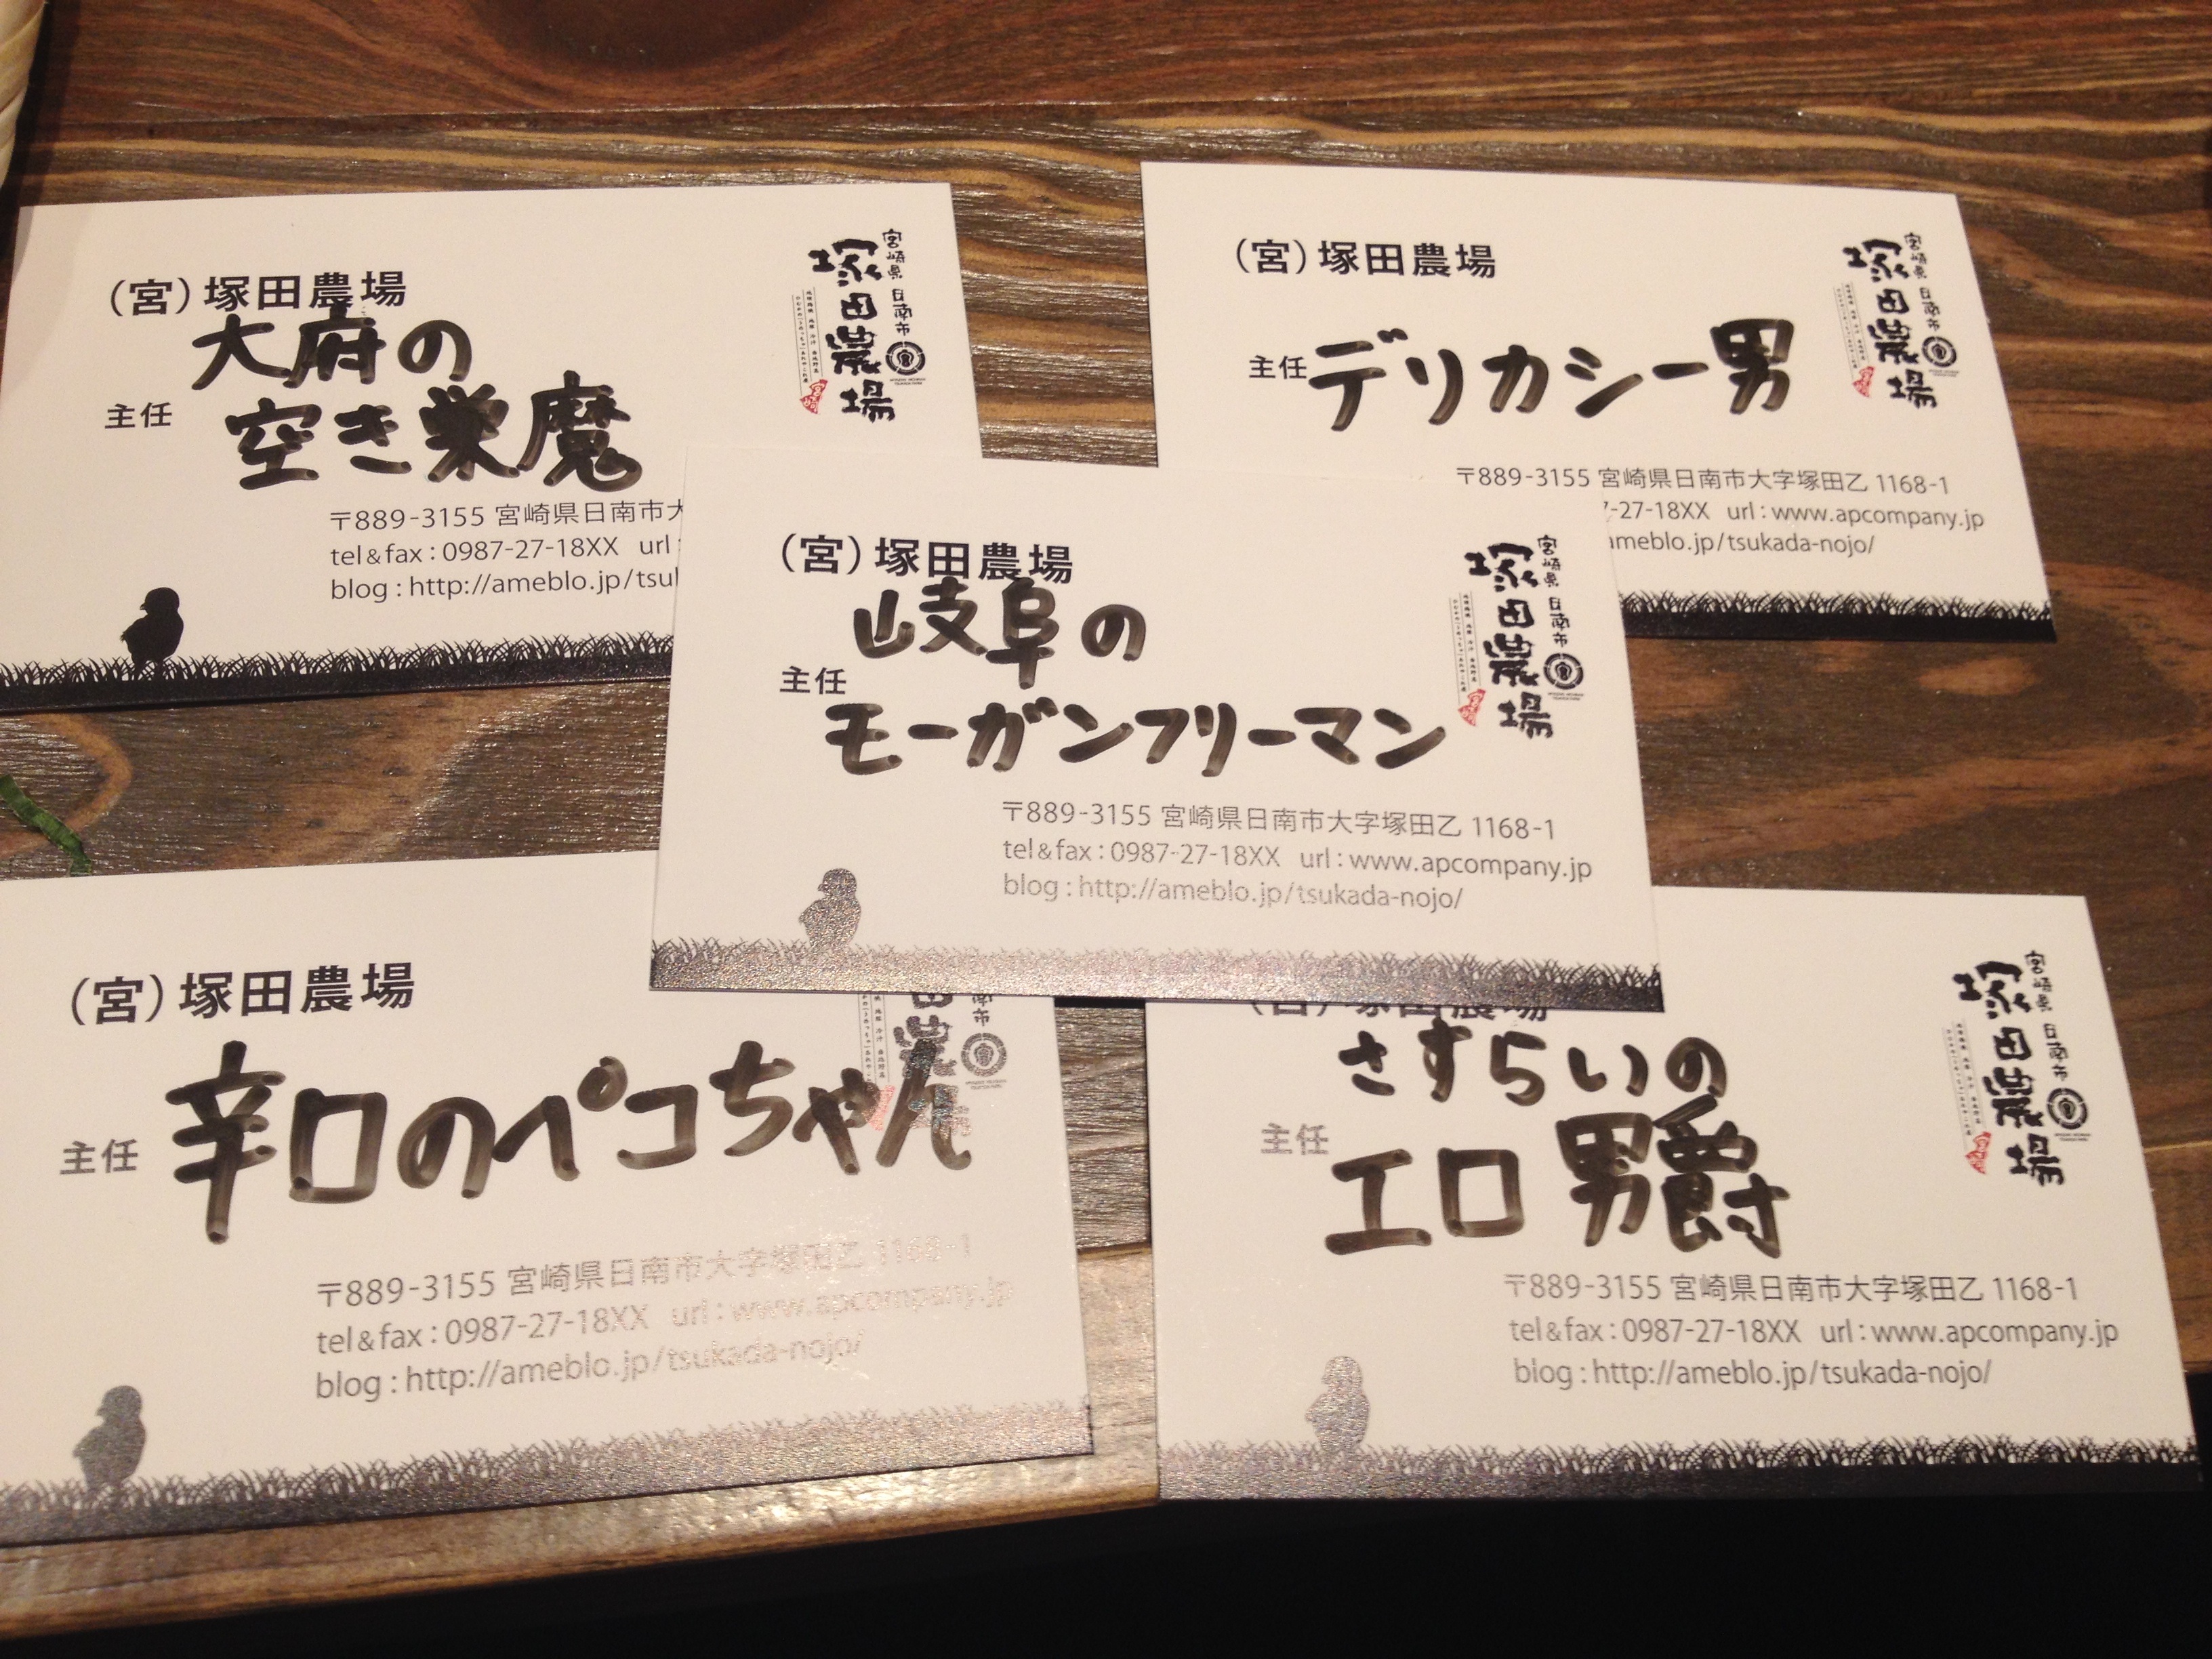 （宮）塚田農場
大府の
主任
空き巣魔
〒889-3155 宮崎県日南市大
tel&fax:0987-27-18XX url:
blog:http://ameblo.jp/tsu
宮崎県 日南市
塚田農場
（宮）塚田農場
主任 デリカシー男
〒889-3155 宮崎県日南市大字塚田乙 1168-1
7-27-18XX url:www.apcompany.jp
ameblo.jp/tsukada-nojo/
宮崎県 日南市
塚田農場
（宮）塚田農場
岐阜の
主任
モーガンフリーマン
〒889-3155 宮崎県日南市大字塚田乙 1168-1
tel&fax:0987-27-18XX url:www.apcompany.jp
blog:http://ameblo.jp/tsukada-nojo/
宮崎県 日南市
塚田農場
（宮）塚田農場
主任 辛口のペコちゃん
〒889-3155 宮崎県日南市大字塚田乙 1168-1
tel&fax:0987-27-18XX url:www.apcompany.jp
blog:http://ameblo.jp/tsukada-nojo/
さすらいの
主任
エロ男爵
〒889-3155 宮崎県日南市大字塚田乙 1168-1
tel&fax:0987-27-18XX url:www.apcompany.jp
blog:http://ameblo.jp/tsukada-nojo/
宮崎県 日南市
塚田農場